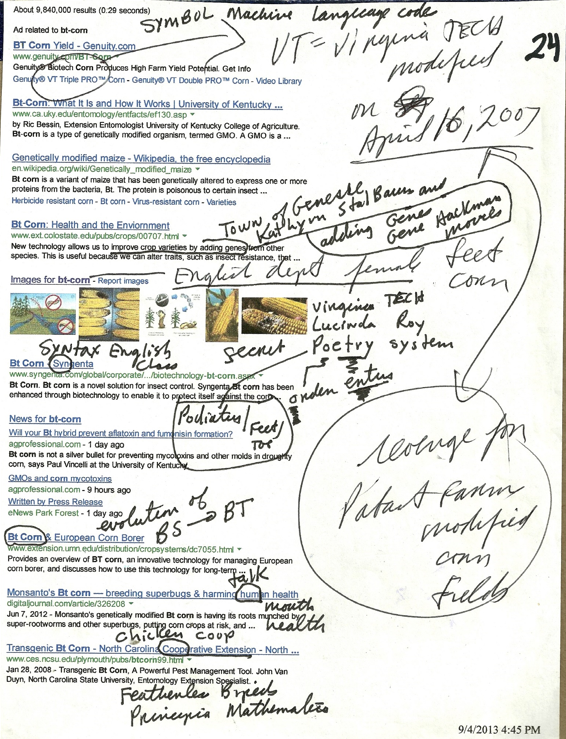 About 9,840,000 results (0:29 seconds)
SYMBOL Machine language code
Ad related to bt-corn
VT = Virginia TECH
modified
24
BT Corn Yield - Genuity.com
www.genuity.com/BT-Corn
Genuity® Biotech Corn Produces High Farm Yield Potential. Get Info
Genuity® VT Triple PRO™ Corn - Genuity® VT Double PRO™ Corn - Video Library
on
April 16, 2007
Bt-Corn: What It is and How It Works | University of Kentucky ...
www.ca.uky.edu/entomology/entfacts/ef130.asp
by Ric Bessin, Extension Entomologist University of Kentucky College of Agriculture.
Bt-corn is a type of genetically modified organism, termed GMO. A GMO is a ...
Genetically modified maize - Wikipedia, the free encyclopedia
en.wikipedia.org/wiki/Genetically_modified_maize
Bt corn is a variant of maize that has been genetically altered to express one or more
proteins from the bacteria, Bt. The protein is poisonous to certain insect ...
Herbicide resistant corn - Bt corn - Virus-resistant corn - Varieties
Town of Genesee
Kathryn Stal Baum and
adding Genes
Gene Hackman
movies
Bt Corn: Health and the Enviornment
www.ext.colostate.edu/pubs/crops/00707.html
New technology allows us to improve crop varieties by adding genes from other
species. This is useful because we can alter traits, such as insect resistance, that ...
English dept female
feet
corn
Images for bt-corn - Report images
Virginia TECH
Lucinda Roy
Poetry system
SYNTAX English
Class
secret
Bt Corn - Syngenta
www.syngenta.com/global/corporate/.../biotechnology-bt-corn.aspx
Bt Corn. Bt corn is a novel solution for insect control. Syngenta Bt corn has been
enhanced through biotechnology to enable it to protect itself against the corn ...
Podiatris/
Feet/
Toe
News for bt-corn
Will your Bt hybrid prevent aflatoxin and fumonisin formation?
agprofessional.com - 1 day ago
Bt corn is not a silver bullet for preventing mycotoxins and other molds in droughty
corn, says Paul Vincelli at the University of Kentucky
revenge for
Patant Farm
modified
corn
Fields
GMOs and corn mycotoxins
agprofessional.com - 9 hours ago
Written by Press Release
eNews Park Forest - 1 day ago
evolution of
BS → BT
Bt Corn & European Corn Borer
www.extension.umn.edu/distribution/cropsystems/dc7055.html
Provides an overview of BT corn, an innovative technology for managing European
corn borer, and discusses how to use this technology for long-term ...
talk
Monsanto's Bt corn — breeding superbugs & harming human health
digitaljournal.com/article/326208
Jun 7, 2012 - Monsanto's genetically modified Bt corn is having its roots munched by
super-rootworms and other superbugs, putting corn crops at risk, and ...
mouth
health
chicken coop
Transgenic Bt Corn - North Carolina Cooperative Extension - North ...
www.ces.ncsu.edu/plymouth/pubs/btcorn99.html
Jan 28, 2008 - Transgenic Bt Corn, A Powerful Pest Management Tool. John Van
Duyn, North Carolina State University, Entomology Extension Specialist.
Featherless Bipeds
Principia Mathematica
9/4/2013 4:45 PM